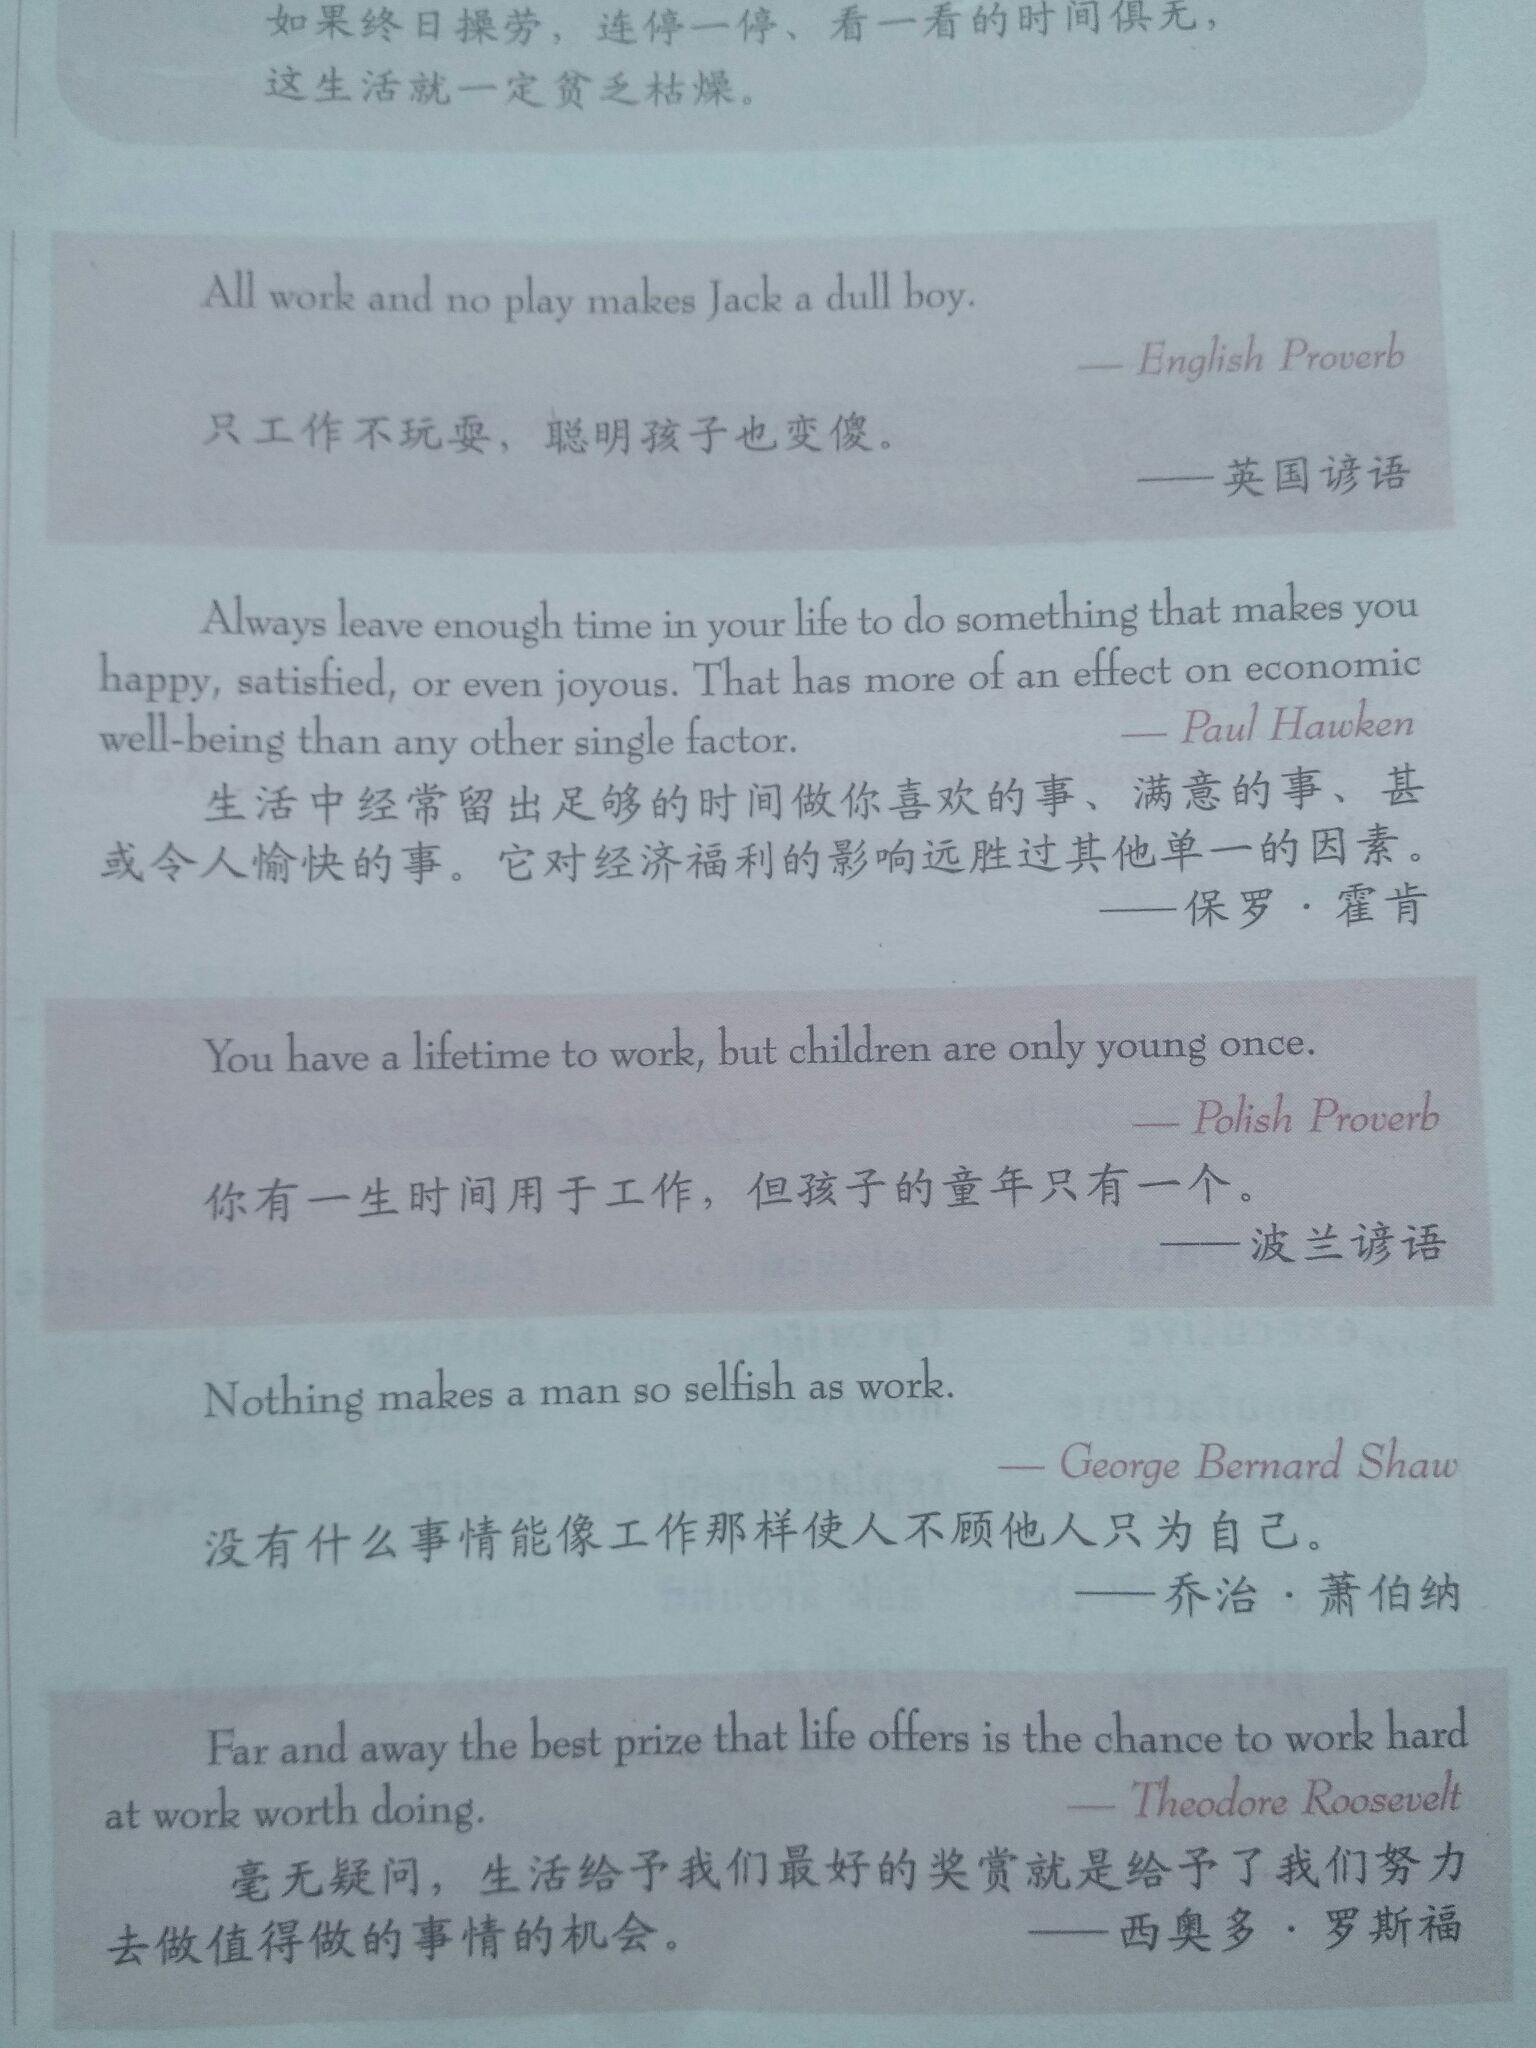 如果终日操劳，连停一停、看一看的时间俱无，
这生活就一定贫乏枯燥。
All work and no play makes Jack a dull boy.
— English Proverb
只工作不玩耍，聪明孩子也变傻。
——英国谚语
Always leave enough time in your life to do something that makes you
happy, satisfied, or even joyous. That has more of an effect on economic
well-being than any other single factor. — Paul Hawken
生活中经常留出足够的时间做你喜欢的事、满意的事、甚
或令人愉快的事。它对经济福利的影响远胜过其他单一的因素。
——保罗·霍肯
You have a lifetime to work, but children are only young once.
— Polish Proverb
你有一生时间用于工作，但孩子的童年只有一个。
——波兰谚语
Nothing makes a man so selfish as work.
— George Bernard Shaw
没有什么事情能像工作那样使人不顾他人只为自己。
——乔治·萧伯纳
Far and away the best prize that life offers is the chance to work hard
at work worth doing. — Theodore Roosevelt
毫无疑问，生活给予我们最好的奖赏就是给予了我们努力
去做值得做的事情的机会。 ——西奥多·罗斯福